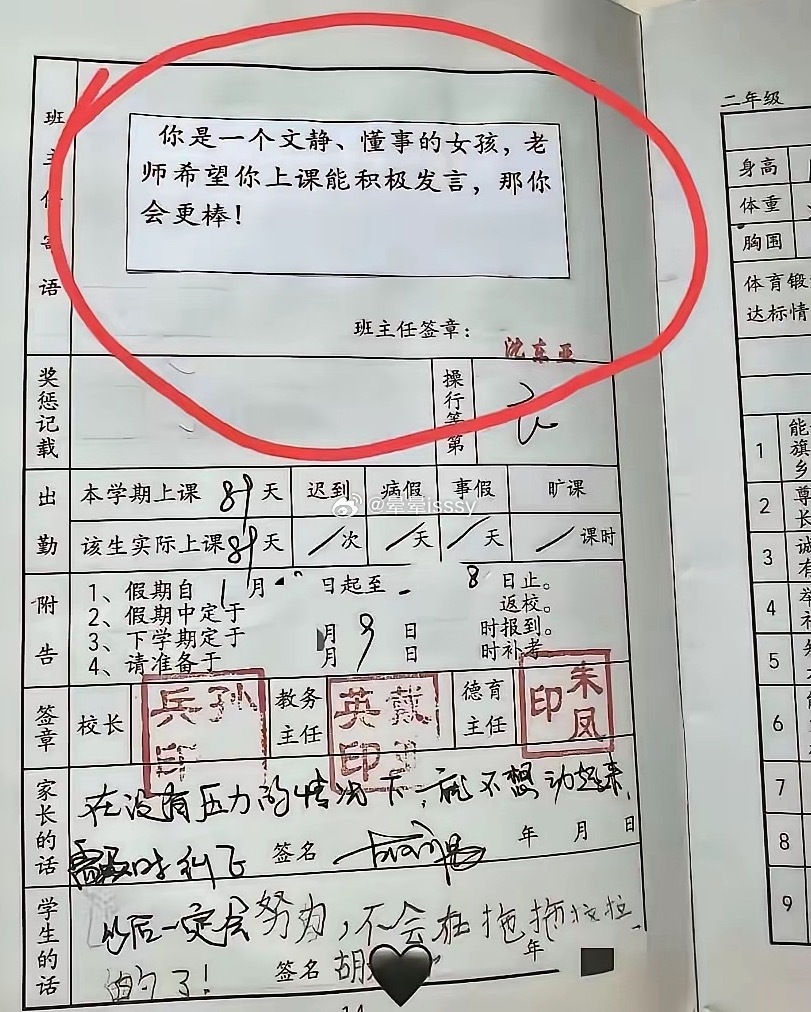 班主任寄语
你是一个文静、懂事的女孩，老
师希望你上课能积极发言，那你
会更棒！
班主任签章：
沈东亚
奖惩记载
操行等第
出勤
本学期上课 89 天 迟到 病假 事假 旷课
该生实际上课 89 天 / 次 / 天 / 天 / 课时
@晕晕isssy
附告
1、假期自 1 月 日起至 8 日止。
2、假期中定于 返校。
3、下学期定于 月 9 日 时报到。
4、请准备于 月 日 时补考。
签章
校长 孙兵印 教务主任 戴英印 德育主任 朱凤印
家长的话
在没有压力的情况下，就不想动起来，
需及时 签名 年 月 日
学生的话
以后一定会努力，不会在拖拖拉拉
的了！ 签名 胡 年
14
二年级
身高
体重
胸围
体育锻
达标情
1 能
旗
乡
2 尊
长
3 诚
有
4 举
礼
5
6
7
8
9